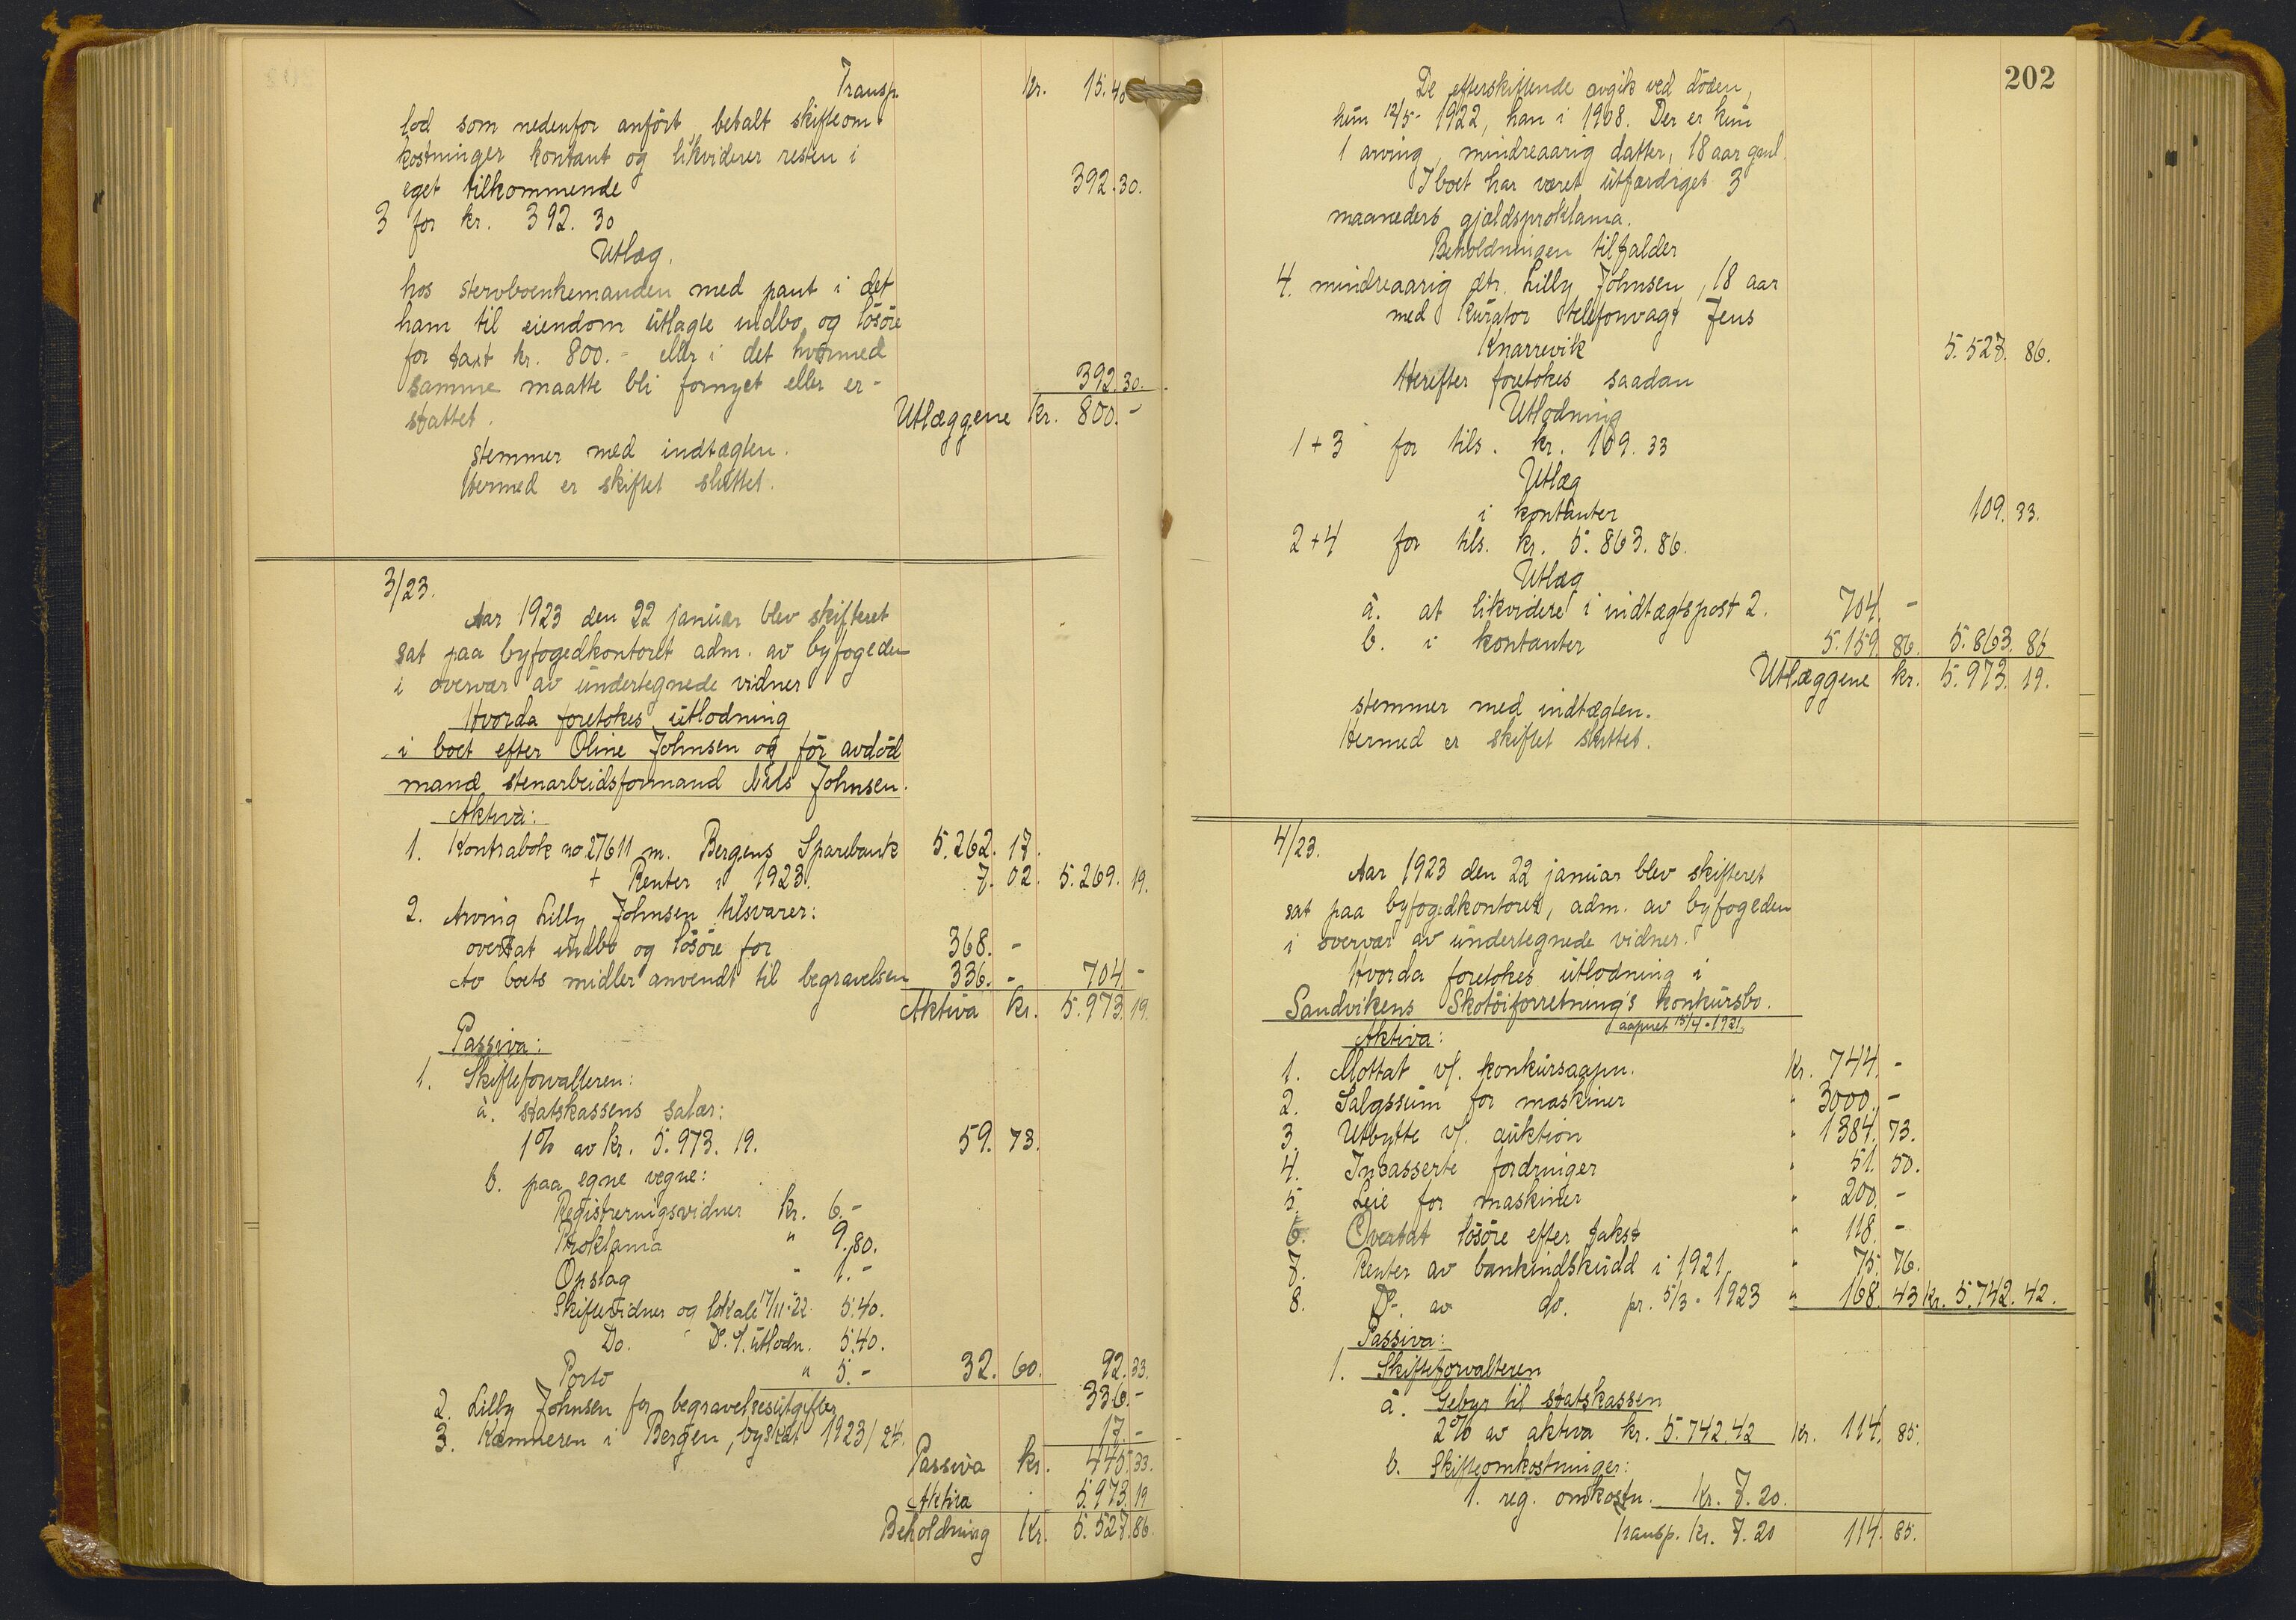 Transp. kr. 15.40
lod som nedenfor anført, betalt skifteom-
kostninger kontant og likviderer resten i
eget tilkommende 392.30.
3 for kr. 392.30
Utlæg.
hos stervboenkemanden med pant i det
ham til eiendom utlagte indbo og løsøre
for takst kr. 800.- eller i det hvormed
samme maatte bli fornyet eller er- 392.30.
stattet. Utlæggene kr. 800.-
stemmer med indtægten.
Hermed er skiftet sluttet.
3/23.
Aar 1923 den 22 januar blev skifteret
sat paa byfogedkontoret adm. av byfogeden
i overvær av undertegnede vidner
Hvorda foretokes utlodning
i boet efter Oline Johnsen og før avdød
mand stenarbeidsformand Nils Johnsen.
Aktiva:
1. Kontrabok no 27611 m. Bergens Sparebank 5.262.17.
+ Renter i 1923. 7.02. 5.269.19.
2. Arving Lilly Johnsen tilsvarer:
overtat indbo og løsøre for 368.-
Av boets midler anvendt til begravelsen 336.- 704.-
Aktiva kr. 5.973.19.
Passiva:
1. Skifteforvalteren:
a. statskassens salær:
1% av kr. 5.973.19. 59.73.
b. paa egne vegne:
Registreringsvidner kr. 6.-
Proklama " 9.80.
Opslag " 1.-
Skiftevidner og lokale 17/11-22 5.40.
Do. Do. f. utlodn. 5.40.
Porto " 5.- 32.60. 92.33.
2. Lilly Johnsen for begravelsesutgifter 336.-
3. Kæmneren i Bergen, byskat 1923/24. 17.-
Passiva kr. 445.33.
Aktiva " 5.973.19
Beholdning Kr. 5.527.86.
202
De efterskiftende avgik ved døden,
hun 12/5- 1922, han i 1908. Der er kun
1 arving, mindreaarig datter, 18 aar gml.
I boet har været utfærdiget 3
maaneders gjældsproklama.
Beholdningen tilfalder
4. mindreaarig dtr. Lilly Johnsen, 18 aar
med kurator telefonvagt Jens
Knarrevik 5.527.86.
Herefter foretokes saadan
Utlodning
1+3 for tils. kr. 109.33
Utlæg
i kontanter 109.33.
2+4 for tils. kr. 5.863.86.
Utlæg
a. at likvidere i indtægtspost 2. 704.-
b. i kontanter 5.159.86. 5.863.86
Utlæggene kr. 5.973.19.
stemmer med indtægten.
Hermed er skiftet sluttet.
4/23.
Aar 1923 den 22 januar blev skifteret
sat paa byfogedkontoret, adm. av byfogeden
i overvær av undertegnede vidner.
Hvorda foretokes utlodning i
Sandvikens Skotøiforretning's konkursbo.
aapnet 15/4-1921.
Aktiva:
1. Mottat v/. konkursaapn. Kr. 744.-
2. Salgssum for maskiner " 3000.-
3. Utbytte v/. auktion " 1384.73.
4. Incasserte fordringer " 51.50.
5. Leie for maskiner " 200.-
6. Overtat løsøre efter takst " 118.-
7. Renter av bankindskudd i 1921. " 75.76.
8. Do. av do. pr. 5/3-1923 " 168.43 Kr. 5.742.42.
Passiva:
1. Skifteforvalteren
a. Gebyr til statskassen
2% av aktiva kr. 5.742.42 Kr. 114.85.
b. Skifteomkostninger:
1. reg. omkostn. Kr. 7.20.
Transp. Kr. 7.20 114.85.